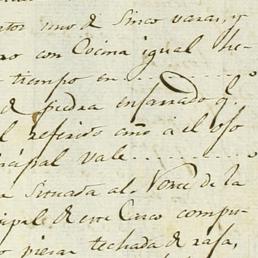 uno de Sinco varas, y
con Cocina igual he-
tiempo en
de piedra enfanado q.
el referido como á el uso
cipal vale
Situada al Norte de la
cipal de este Casco compu-
piezas techada de rafa,